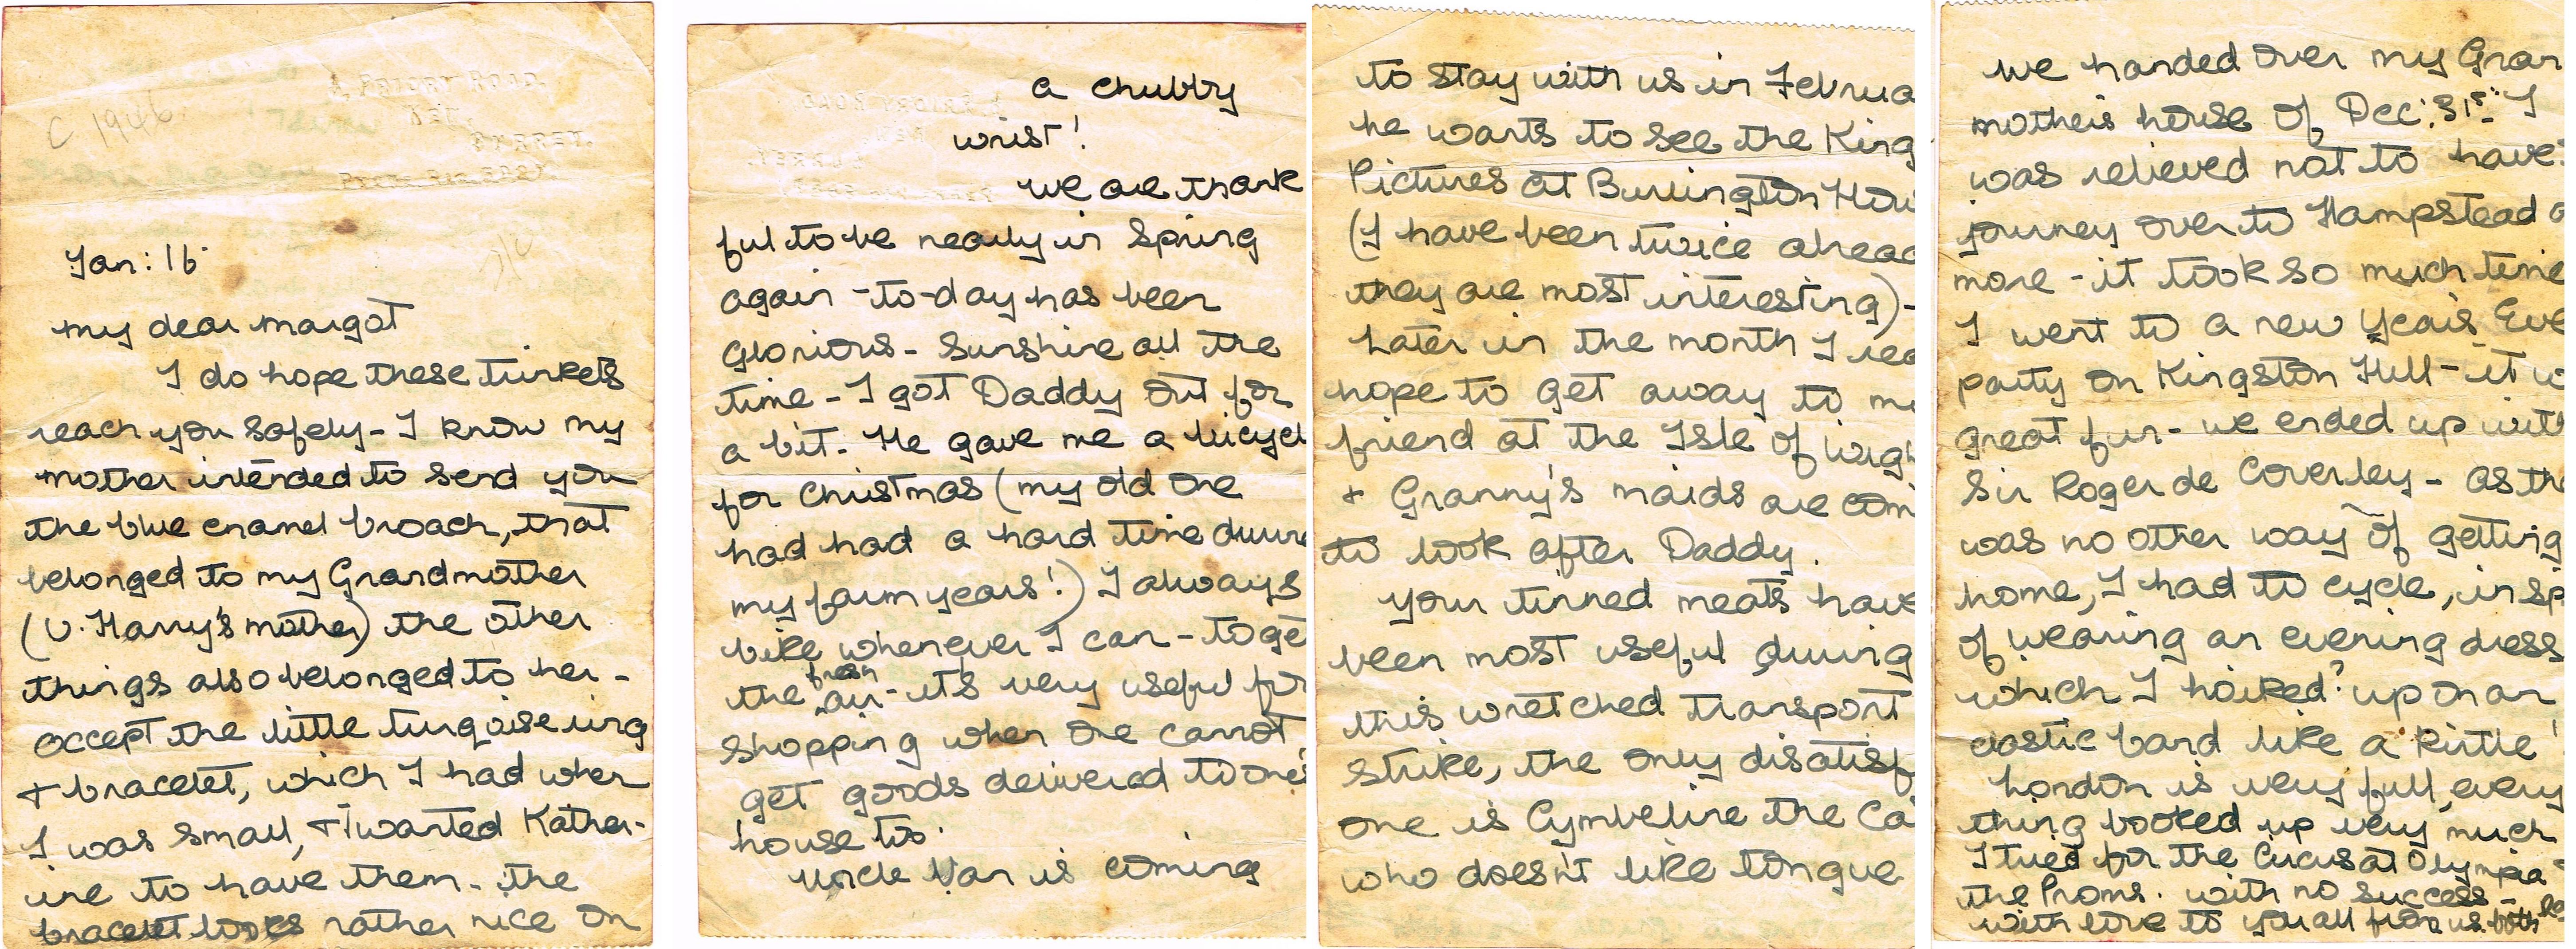 C 1946
PRIORY ROAD,
KEW,
SURREY.
Jan: 16
My dear Margot
I do hope these trinkets
reach you safely - I know my
mother intended to send you
the blue enamel broach, that
belonged to my Grandmother
(U. Harry's mother) the other
things also belonged to her -
except the little turqoise ring
+ bracelet, which I had when
I was small, + I wanted Kather-
ine to have them - the
bracelet looks rather nice on
a chubby
wrist!
We are thank
ful to be nearly in Spring
again - to-day has been
Glorious - Sunshine all the
time - I got Daddy out for
a bit. He gave me a bicycl
for Christmas (my old one
had had a hard time durin
my farm years!) I always
bike whenever I can - to get
the fresh air - it's very useful for
shopping when one cannot
get goods delivered to one's
house too.
Uncle Van is coming
to stay with us in Februa
he wants to see the King
Pictures at Burlington Hou
(I have been twice alread
they are most interesting) -
Later in the month I rea
hope to get away to my
friend at the Isle of Wigh
+ Granny's maids are com
to look after Daddy.
Your tinned meats have
been most useful during
this wretched transport
strike, the only disatisf
one is Cymbeline the Ca
who doesn't like tongue
We handed over my Gran
mother's house of Dec: 31st: I
was relieved not to have
journey over to Hampstead a
more - it took so much time
I went to a New Year's Eve
party on Kingston Hill - it w
great fun - we ended up with
Sir Roger de Coverley - as the
was no other way of getting
home, I had to cycle, in sp
of wearing an evening dress
which I hoiked? up on an
elastic band like a kirtle!
London is very full, every
thing booked up very much
I tried for the Circus at Olympia
the Proms. with no success -
with love to you all from us both